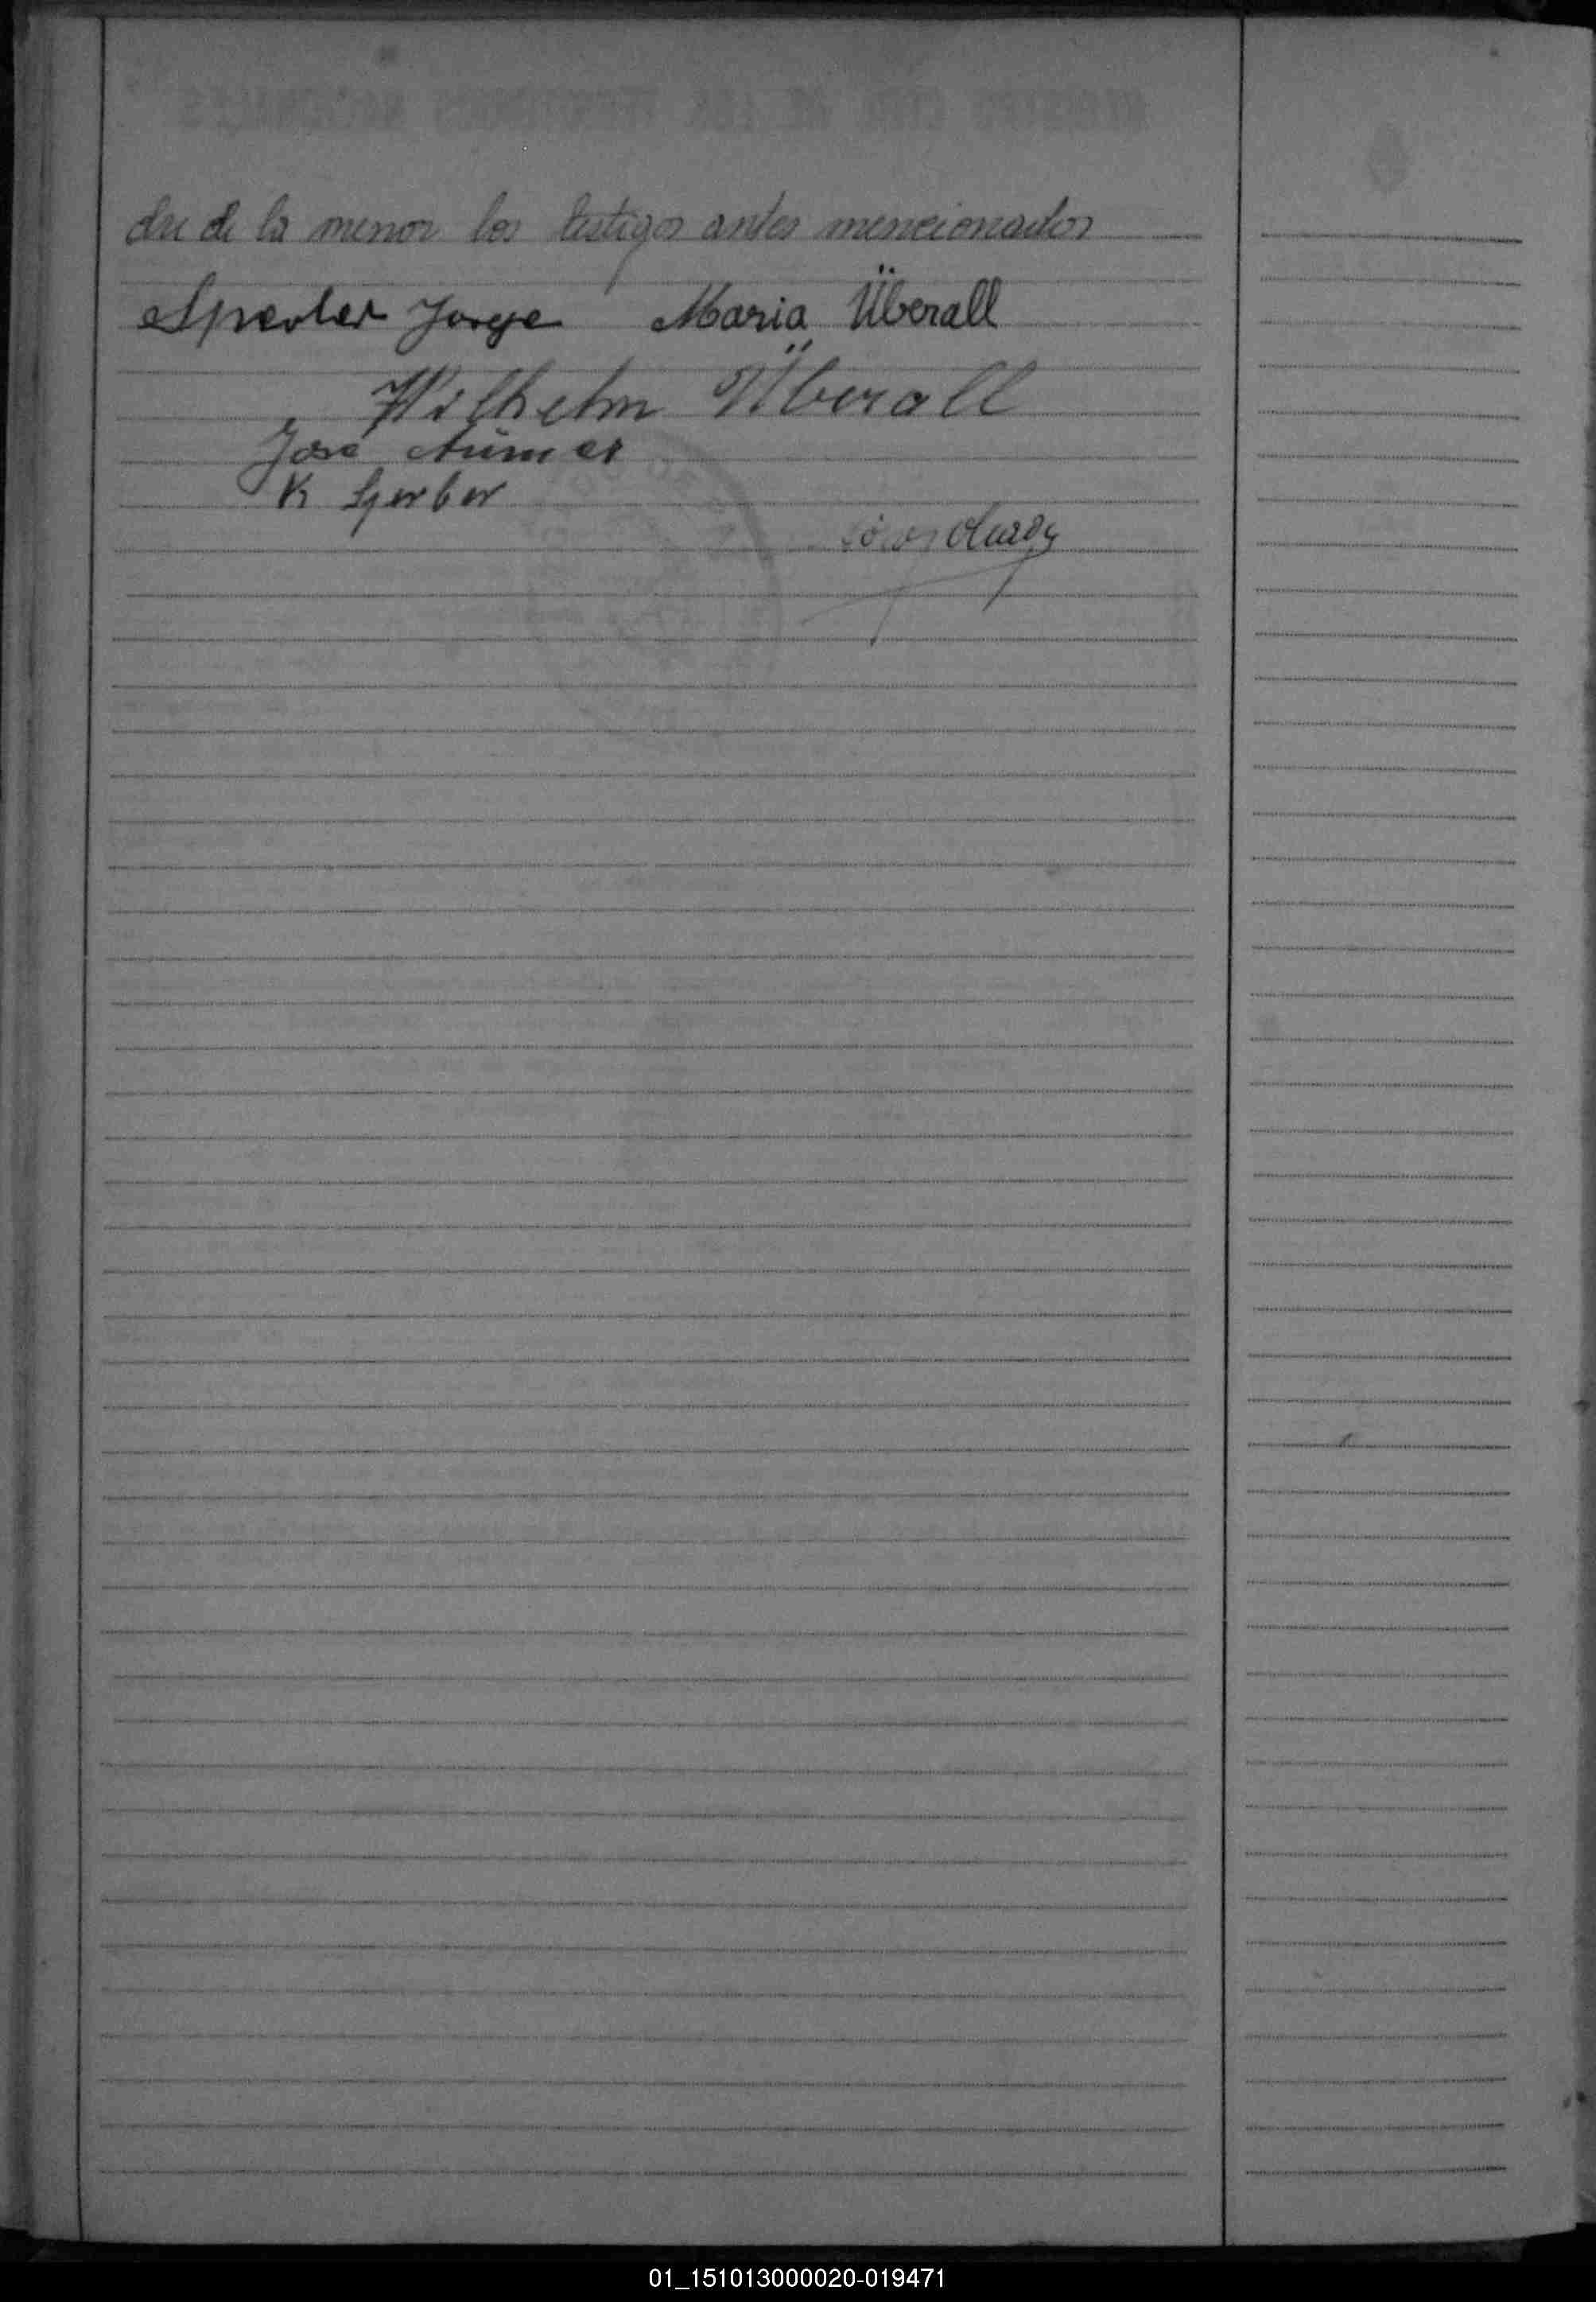 dre de la menor los testigos antes mencionados
Sperber Jorge Maria Überall
Wilhelm Überall
José
K Gerber
01_151013000020-019471